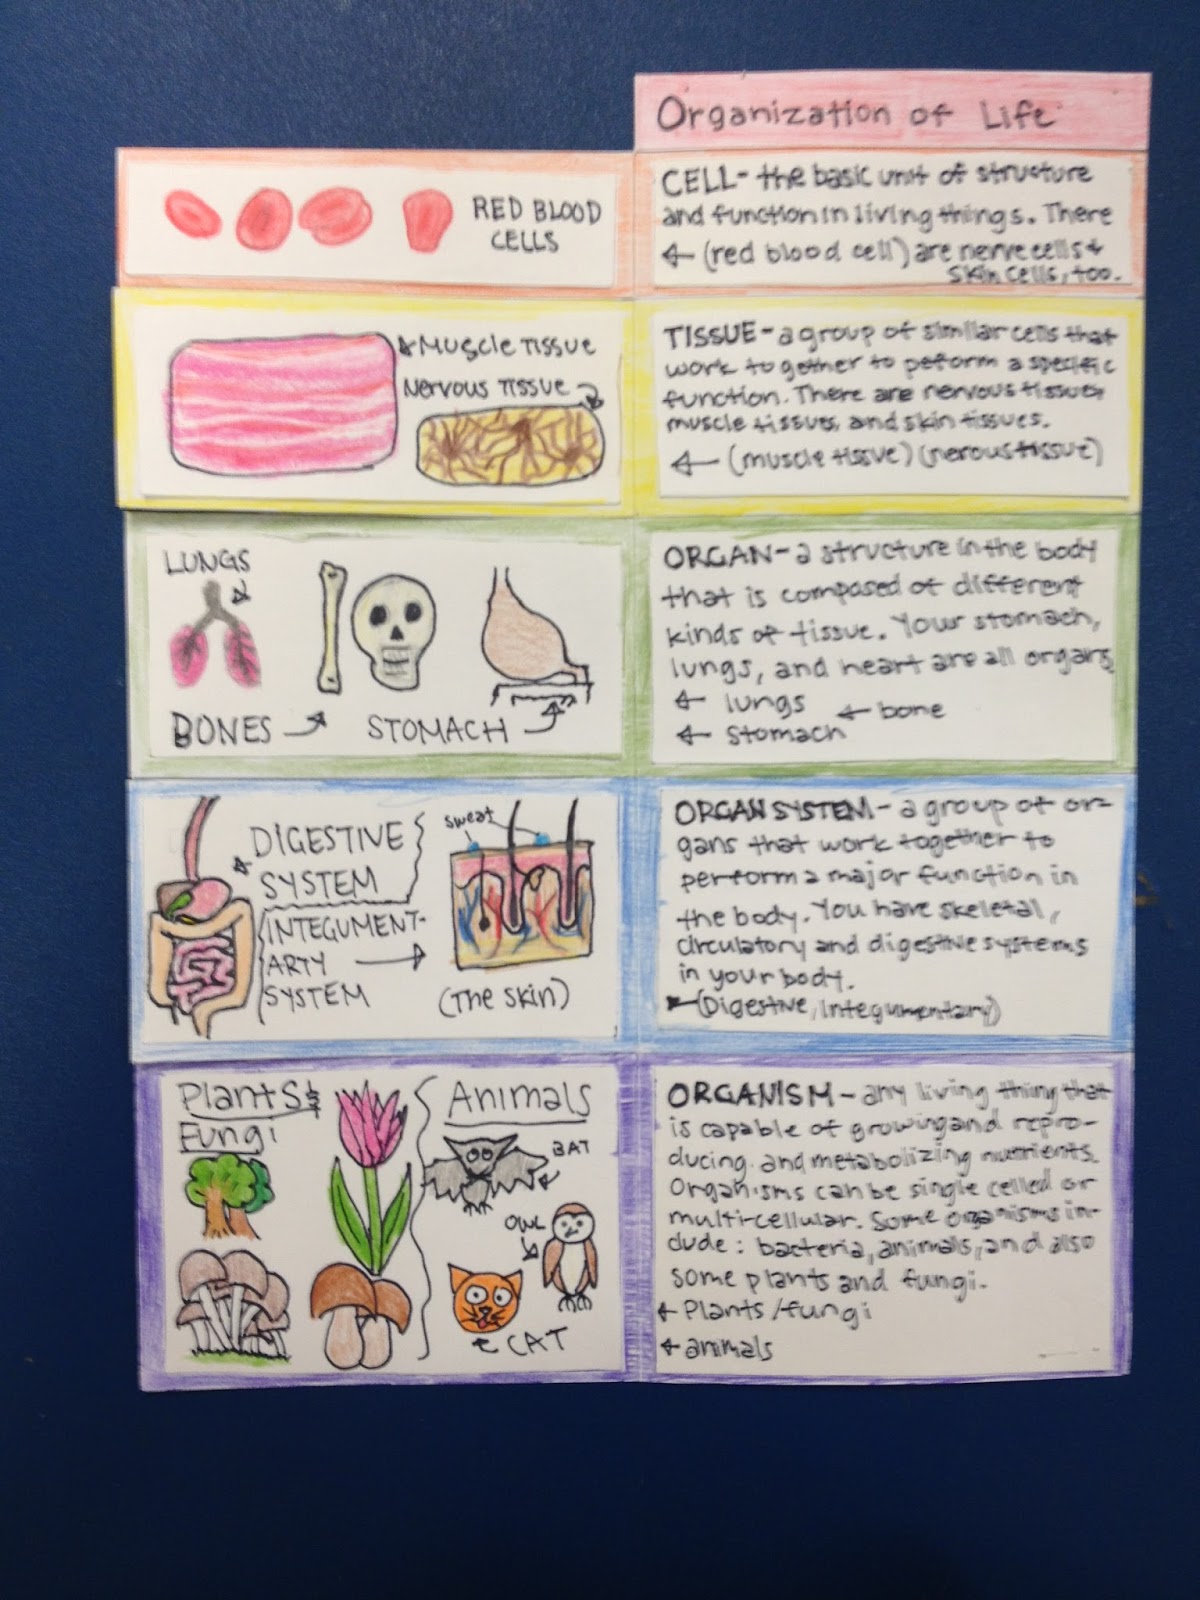 Organization of Life
RED BLOOD
CELLS
CELL- the basic unit of structure
and function in living things. There
← (red blood cell) are nerve cells &
skin cells, too.
Muscle TISSUE
Nervous TISSUE
TISSUE - a group of similar cells that
work together to peform a specific
function. There are nervous tissues,
muscle tissues, and skin tissues.
← (muscle tissue) (nerous tissue)
LUNGS
BONES →
STOMACH →
ORGAN - a structure in the body
that is composed of different
kinds of tissue. Your stomach,
lungs, and heart are all organs.
← lungs
← bone
← stomach
DIGESTIVE
SYSTEM
INTEGUMENT-
ARTY
SYSTEM
sweat
(The skin)
ORGAN SYSTEM - a group of or-
gans that work together to
perform a major function in
the body. You have skeletal,
circulatory and digestive systems
in your body.
← (Digestive, Integumentary)
Plants &
Fungi
Animals
BAT
OWL
← CAT
ORGANISM - any living thing that
is capable of growing and repro-
ducing. and metabolizing nutrients.
Organisms can be single celled or
multi-cellular. Some organisms in-
clude: bacteria, animals, and also
some plants and fungi.
← Plants/fungi
← animals